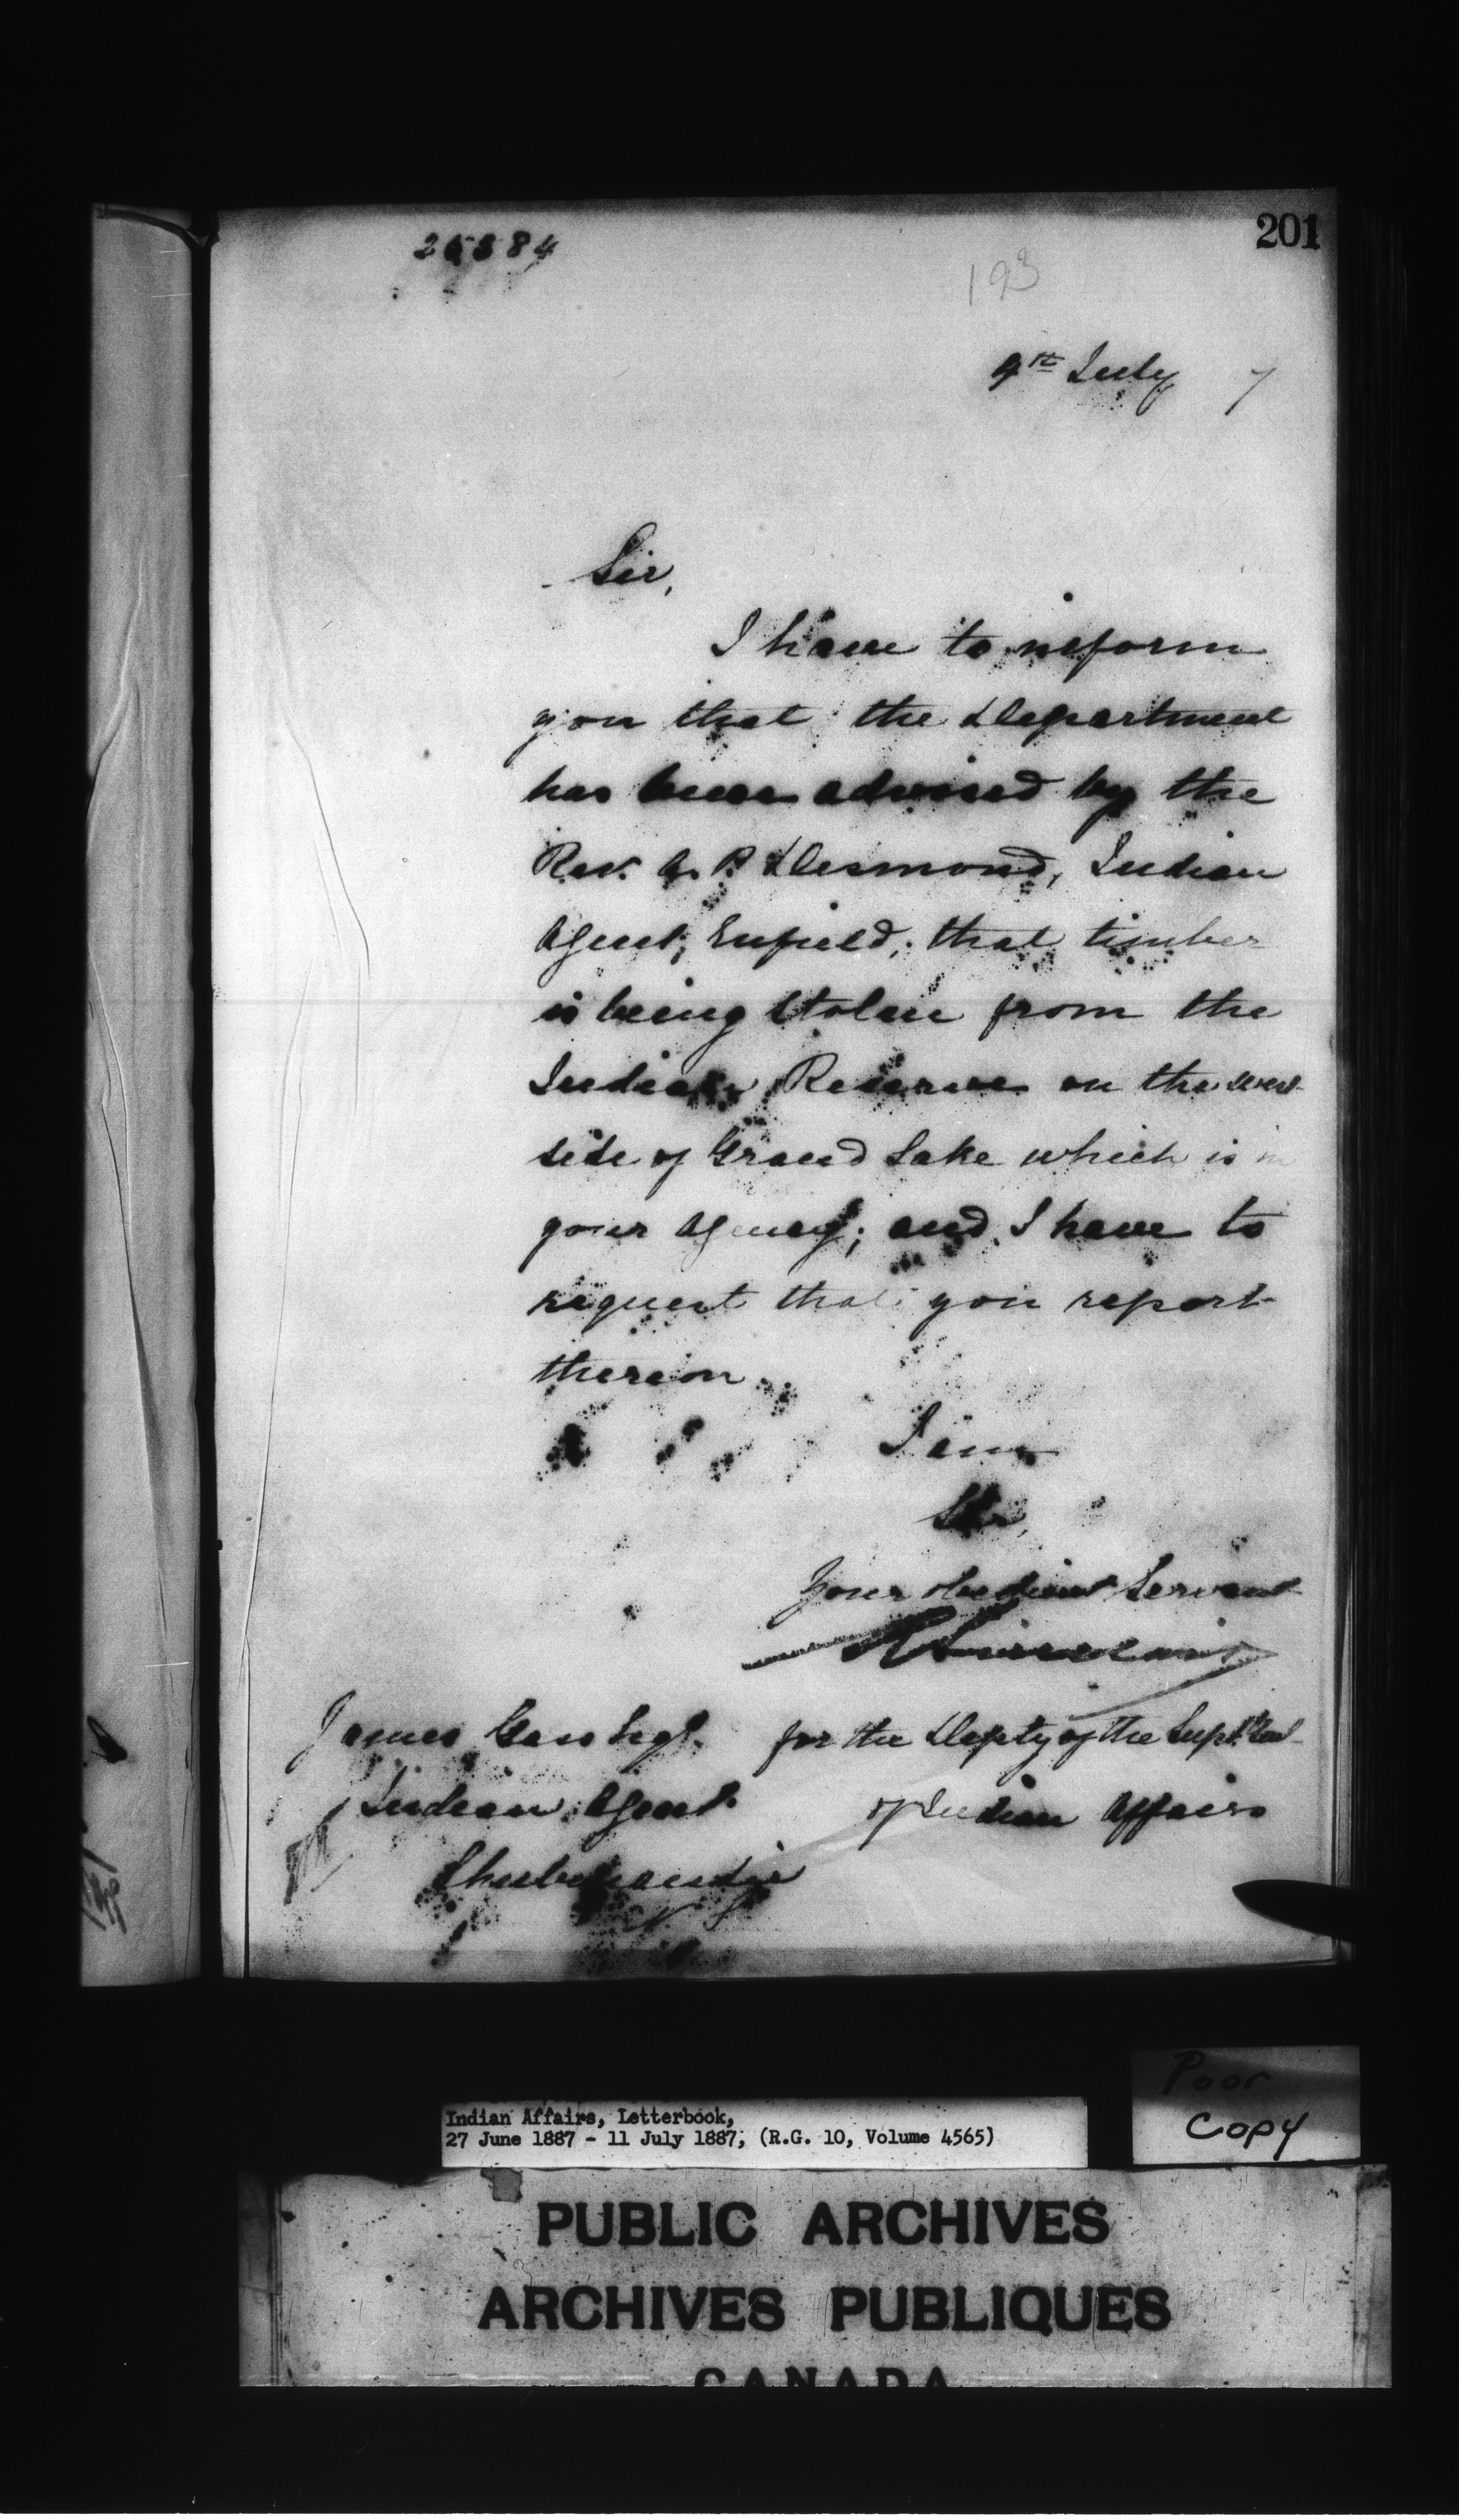 201
193
9th July 7
Sir,
I have to inform
you that the Department
has been advised by the
Rev. P. Desmond, Indian
Agent, Enfield, that timber
is being stolen from the
Indian Reserve on the west
side of Grand Lake which is in
your Agency; and I have to
request that you report
thereon.
I am
Sir,
Your obedient Servant
James Gass Esq.
for the Depty of the Supt. Genl
Indian Agent
of Indian Affairs
Shubenacadie
N S
Poor
Copy
Indian Affairs, Letterbook,
27 June 1887 - 11 July 1887, (R.G. 10, Volume 4565)
PUBLIC ARCHIVES
ARCHIVES PUBLIQUES
CANADA